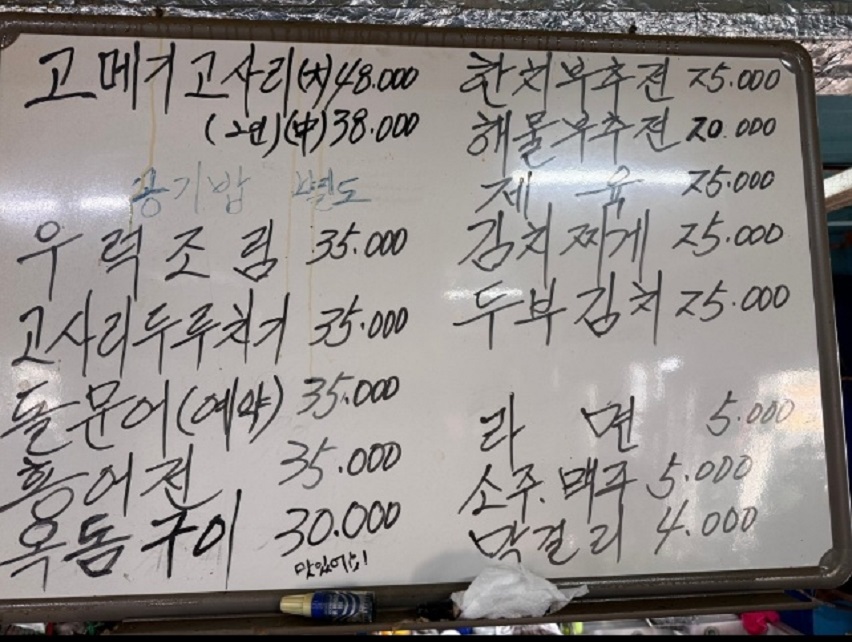 고메기고사리(大) 48.000
(2인)(中) 38.000
공기밥 별도
우럭조림 35.000
고사리두루치기 35.000
돌문어(예약) 35.000
홍어전 35.000
옥돔구이 30.000
맛있어요!
한치부추전 25.000
해물부추전 20.000
제육 25.000
김치찌게 25.000
두부김치 25.000
라면 5.000
소주.맥주 5.000
막걸리 4.000